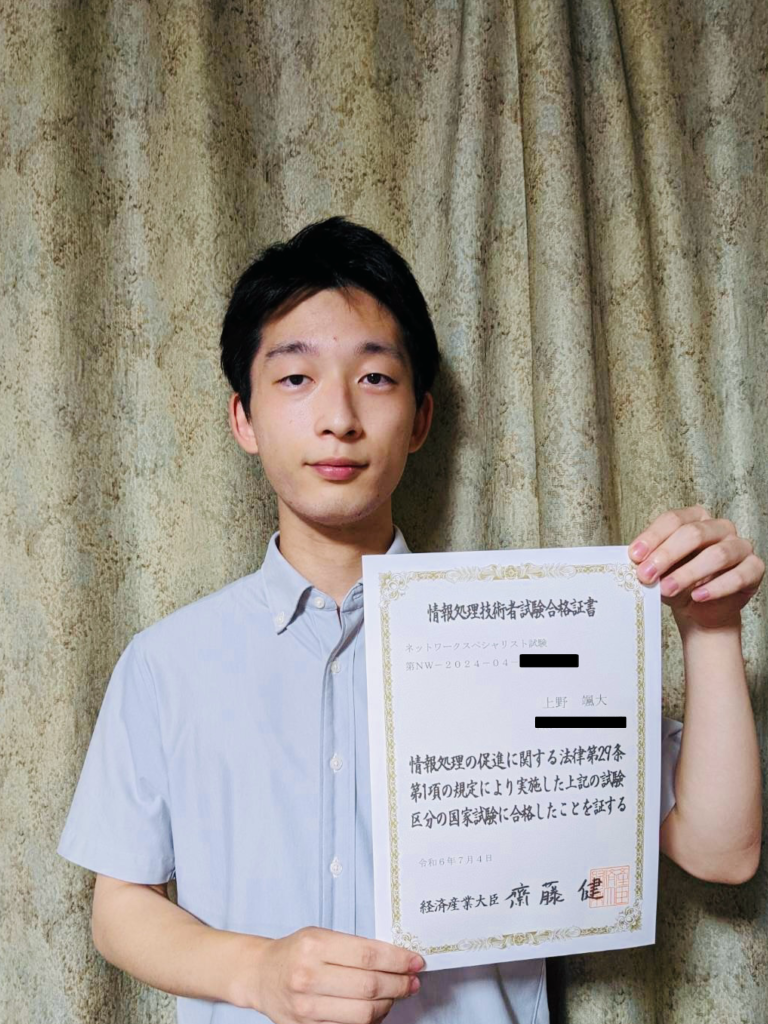 情報処理技術者試験合格証書
ネットワークスペシャリスト試験
第NW－2024－04－
上野　颯大
情報処理の促進に関する法律第29条
第1項の規定により実施した上記の試験
区分の国家試験に合格したことを証する
令和6年7月4日
経済産業大臣 齋藤 健